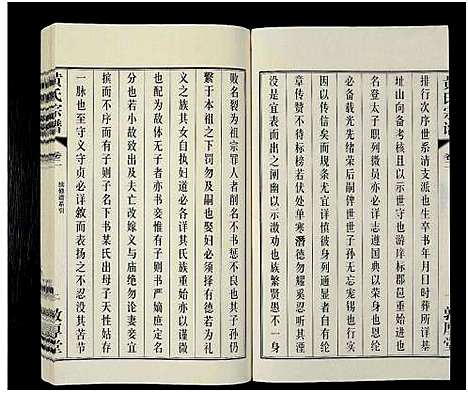 排行次序世系清支派也生卒书年月日时葬所详
址山向备考核也前居本籍继世守也游庠标郡邑重始进也
名登太子职列微员亦必详志遵国典以荣身也恩纶
必备载光先绪荣后嗣俾世世子孙无忘宠锡也
因以传信义夫节妇必谨身列通显者自有传
章传赞不待标榜若伏处单寒潜德勿耀奚忍听其湮
没是宜表而出之阐幽以示激劝也族繁贤愚不一身
败名裂为祖宗罪人者削名不书惩不肖也至其子孙仍
繁于本支之下罚勿及嗣也娶妇必择有德若为礼
义之族其女自执妇道必各详其氏族重始亦以谨微
也配为故体无子者亦书妾惟有子则书严嫡庶定名
分也若小故致出及夫亡改嫁义与庙绝勿论妻妾宜
摈而不书惟有子则子名下书某氏出母子天性姑存
一脉也至守义守贞必详叙而表扬之不忍没其苦节
黄氏宗谱
卷二
续修谱系引
敦厚堂
黄氏宗谱
卷二
敦厚堂